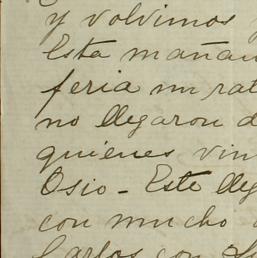 y volvimos
Esta mañan
feria un rat
no llegaron d
quiénes vin
Osio - Este lleg
con mucho
Carlos con